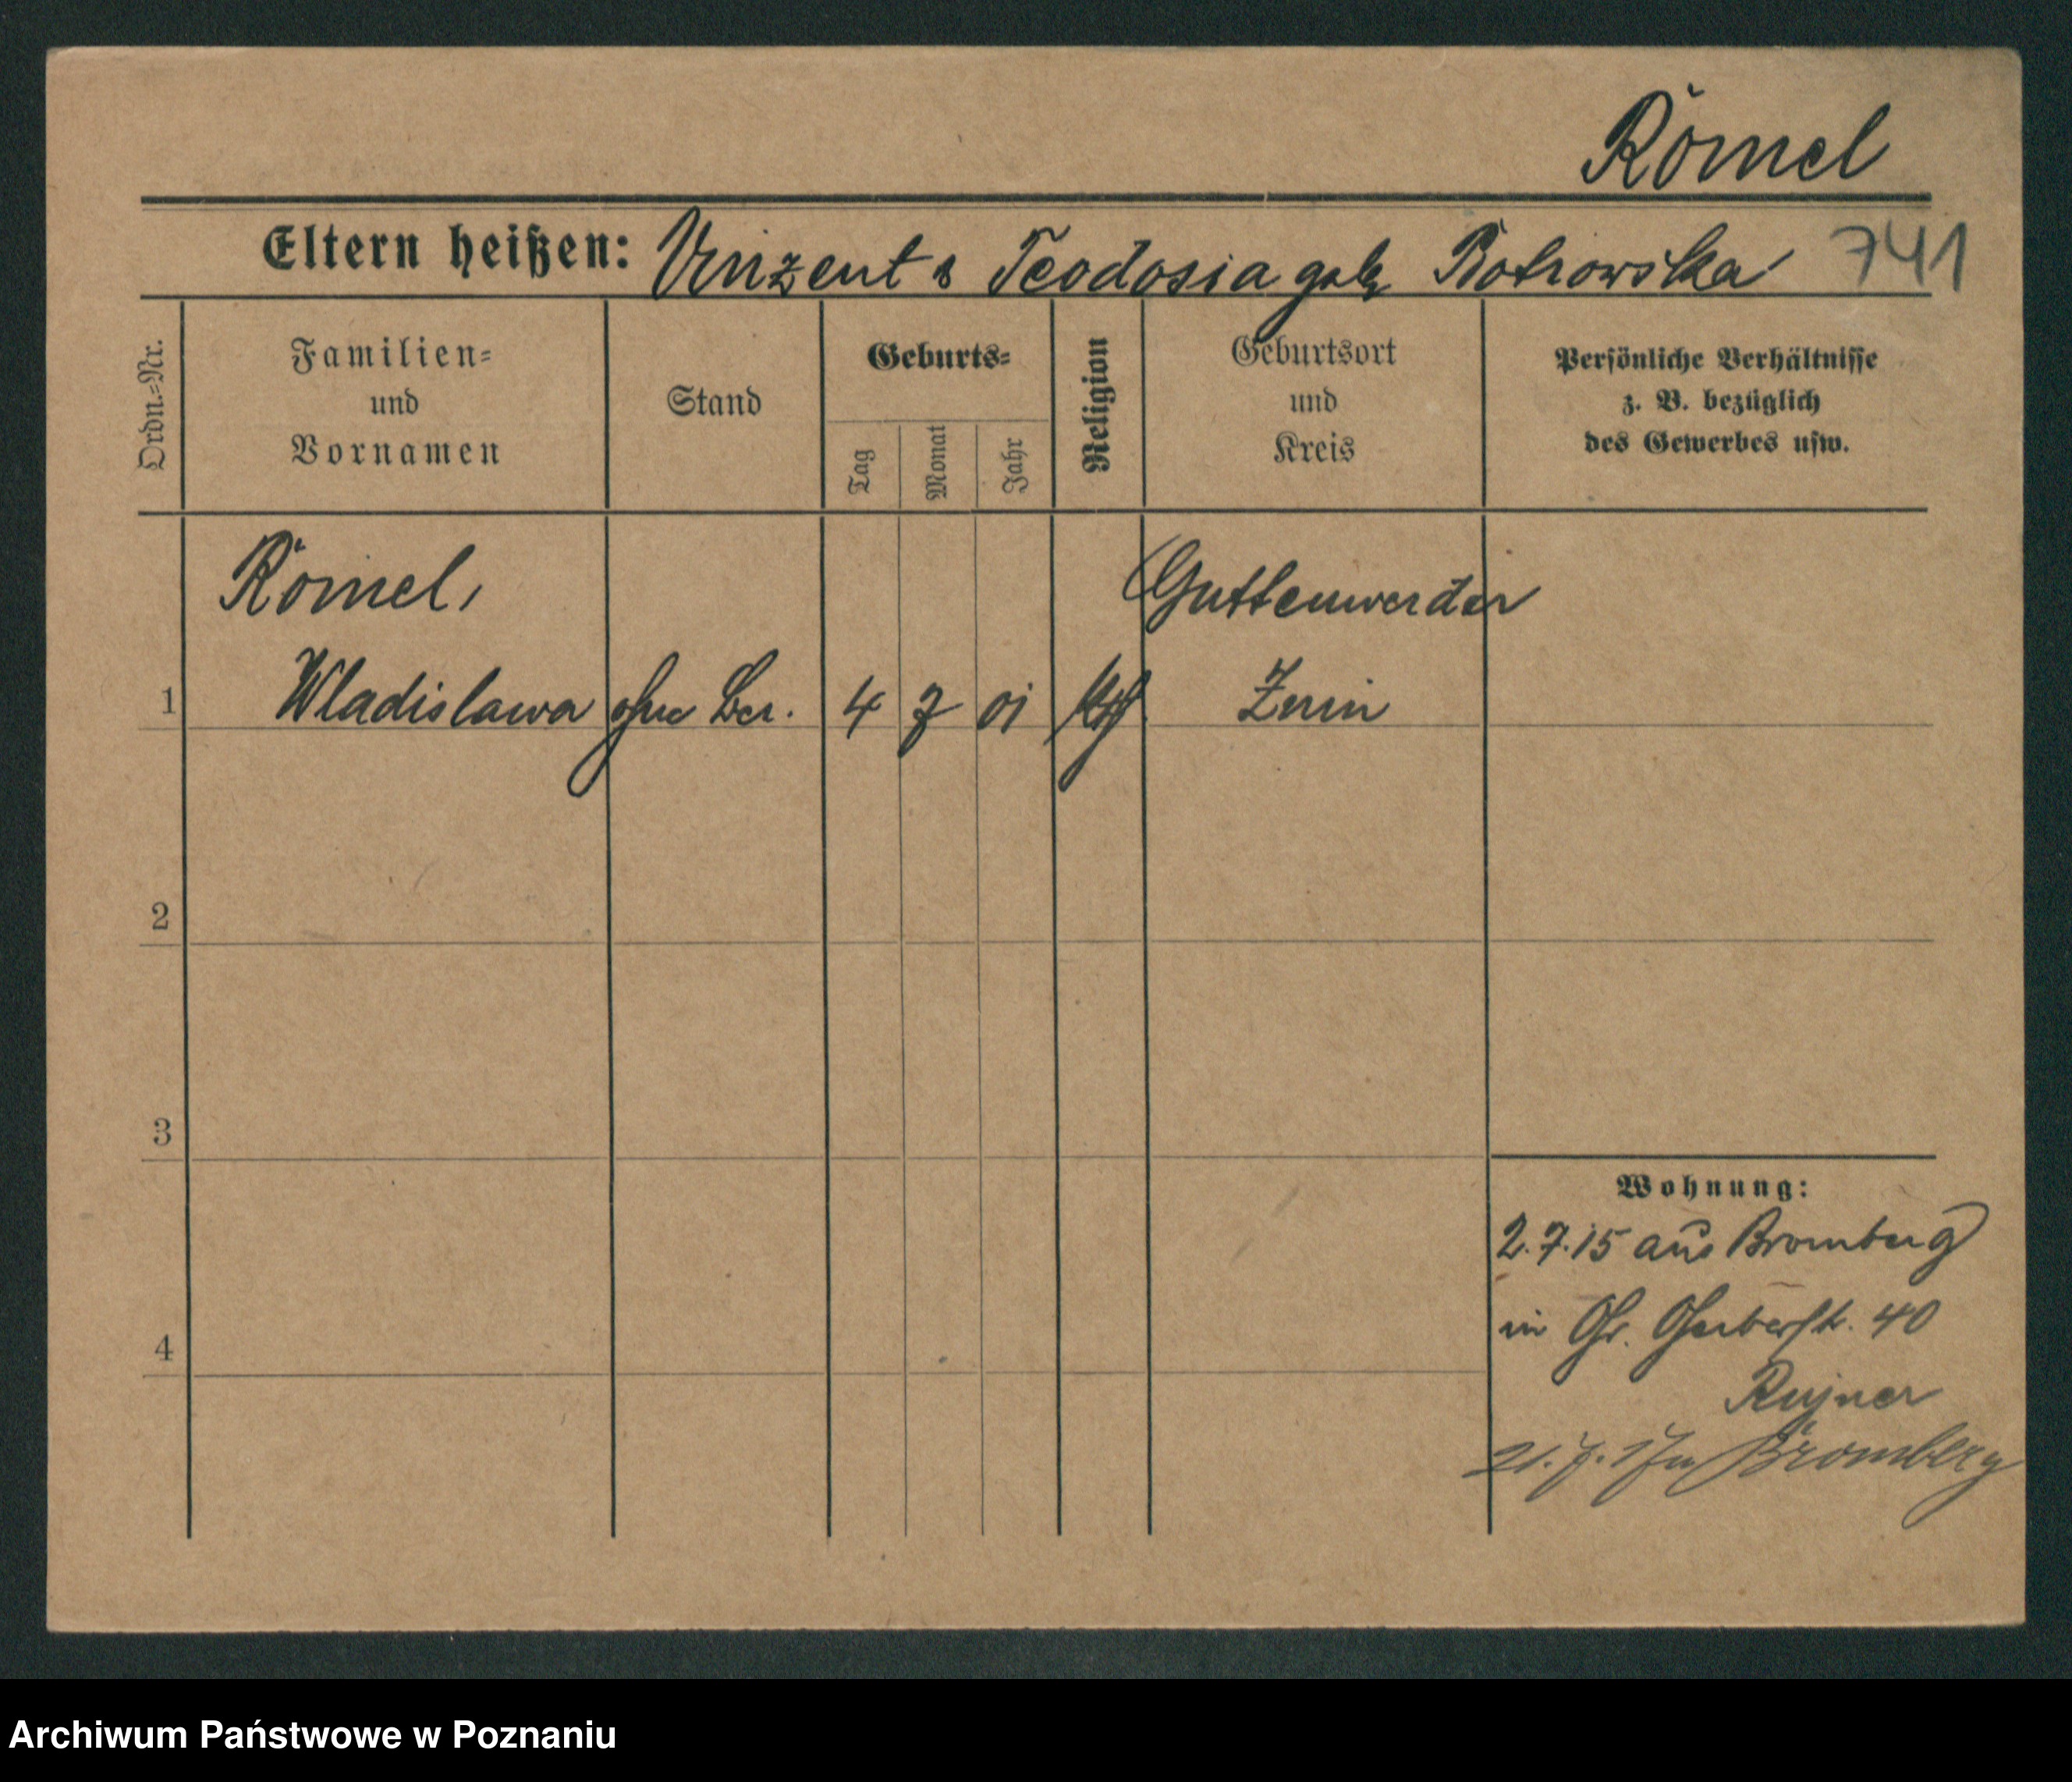 Römel
Eltern heißen: Vinzent & Teodosia geb. Piotrowska 741
Ordn.-Nr.
Familien-
und
Vornamen
Stand
Geburts-
Tag
Monat
Jahr
Religion
Geburtsort
und
Kreis
Persönliche Verhältnisse
z. B. bezüglich
des Gewerbes usw.
Römel, Guttenwerder
1 Wladislawa ohne Ber. 4 7 01 kth Znin
2
3
4
Wohnung:
2.7.15 aus Bromberg
in Gr. Gerberstr. 40
Rujner
21.7.17 n Bromberg
Archiwum Państwowe w Poznaniu